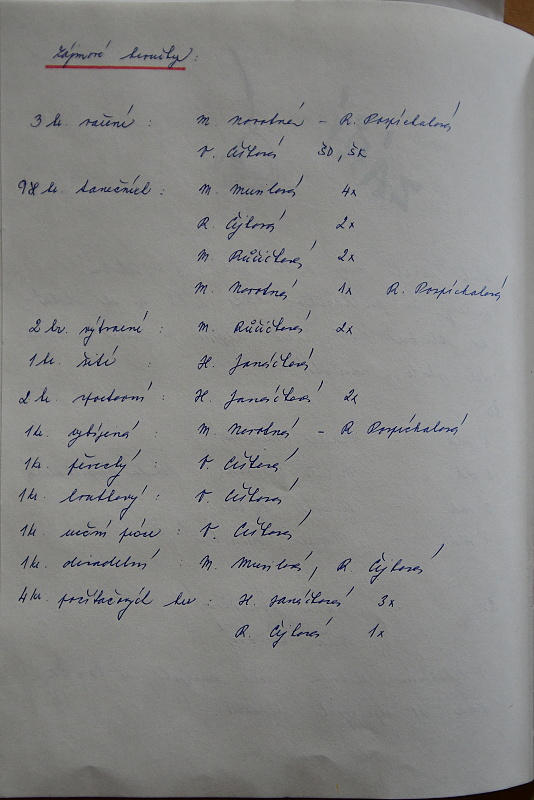 Zájmové kroužky:
3 kr. vaření : M. Novotná - R. Pospíchalová
V. Číšková ŠD, ŠK
9 kr. tanečních : M. Musilová 4x
R. Čejková 2x
M. Růžičková 2x
M. Novotná 1x R. Pospíchalová
2 kr. výtvarné : M. Růžičková 2x
1 kr. šití : H. Janáčková
2 kr. sportovní : H. Janáčková 2x
1 kr. vybíjená : M. Novotná - R Pospíchalová
1 kr. pěvecký : V. Číšková
1 kr. loutkový : V. Číšková
1 kr. ruční práce : V. Číšková
1 kr. divadelní : M. Musilová, R. Čejková
4 kr. počítačových her : H. Janáčková 3x
R. Čejková 1x